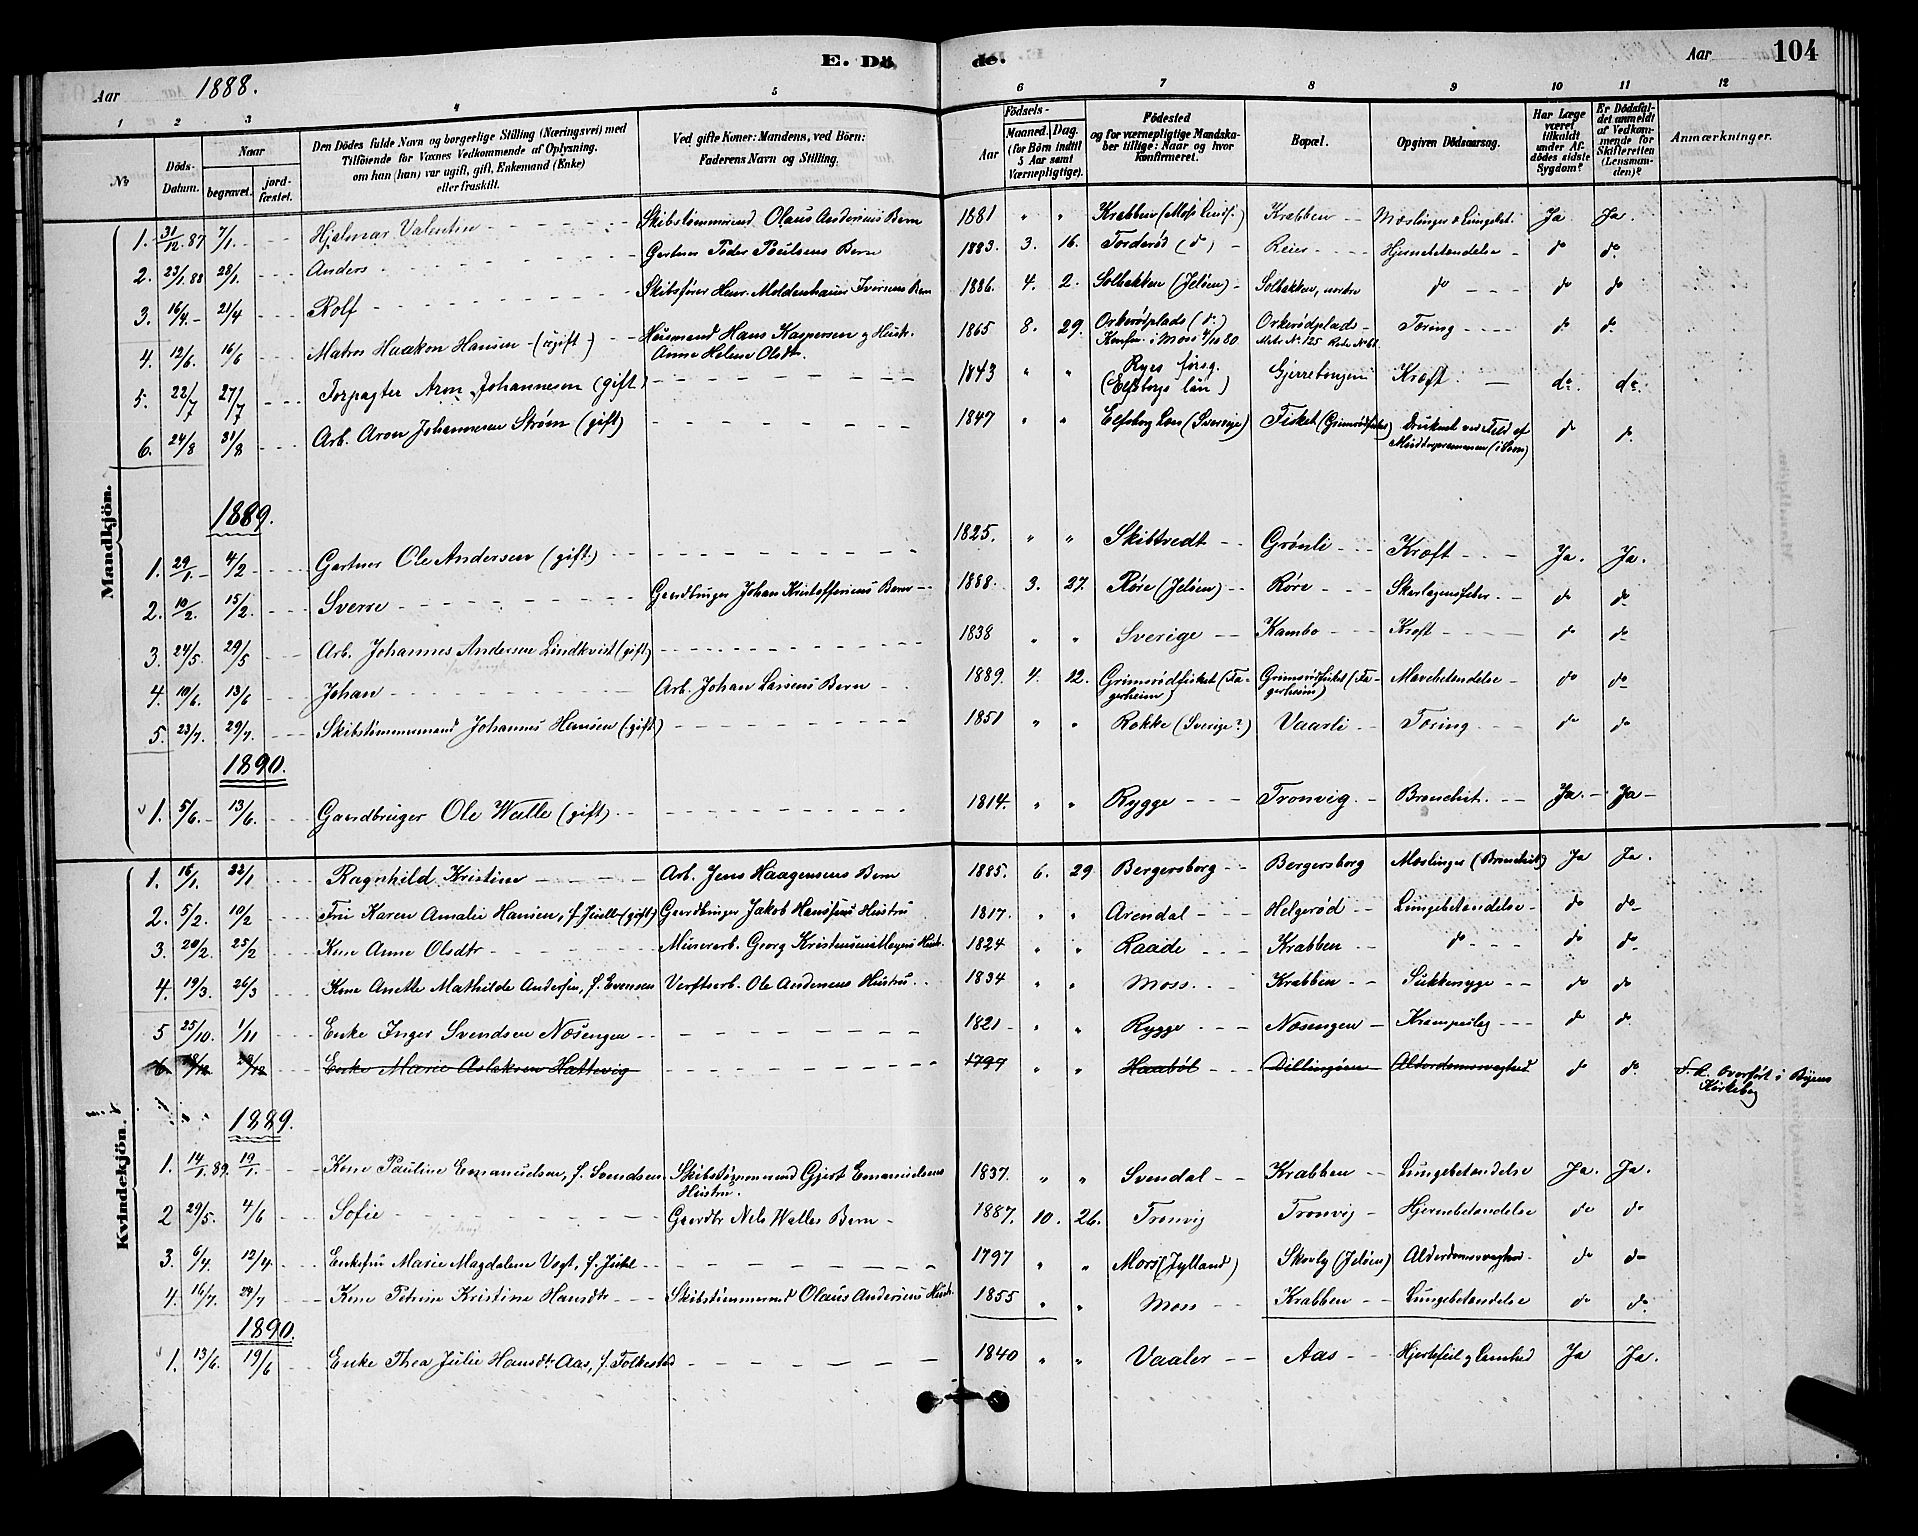 E. Dö de.
Aar 1888.
Aar 104
1 2 3 4 5 6 7 8 9 10 11 12
No
Döds-Datum.
Naar
begravet.
jord-fæstet.
Den Dödes fulde Navn og borgerlige Stilling (Næringsvei) med
Tilföiende for Voxnes Vedkommende af Oplysning,
om han (hun) var ugift, gift, Enkemand (Enke)
eller fraskilt.
Ved gifte Koner: Mandens, ved Börn:
Faderens Navn og Stilling.
Födsels-
Aar
Maaned. Dag.
(for Börn indtil
5 Aar samt
Værnepligtige).
Födested
og for værnepligtige Mandska-
ber tillige: Naar og hvor
konfirmeret.
Bopæl.
Opgiven Dödsaarsag.
Har Læge
været
tilkaldt
under Af-
dödes sidste
Sygdom?
Er Dödsfal-
det anmeldt
af Vedkom-
mende for
Skifteretten
(Lensman-
den)?
Anmærkninger.
Mandkjön.
1. 31/12 87 7/1 Hjalmar Valentin Skibstømmermd Olaus Andersens Barn 1881 " " Krabben (Moss Lands.) Krabben Mæslinger & Lungebet. Ja Ja.
2. 23/1 88 28/1 Anders Gartner Peder Poulsens Barn 1883. 3. 16. Torderød (do) Reier Hjernebetændelse do do
3. 16/4 21/4 Rolf Skibsfører Henr. Moldenhauer Iversens Barn 1886. 4. 2. Solbakken (Jeløen) Solbakken, nordre do do do
4. 12/6 16/6 Matros Haakon Hansen (ugift) Husmand Hans Kaspersen og Hustr. Anne Helene Olsdr. 1865 8. 29. Orkerødplads (do) Konfm. i Moss 4/10 80 Orkerødplads Mets No 125 Rode No 61 Tæring do do
5. 22/7 27/7 Forpagter Aron Johannesen (gift) 1843 " " Ryes forsg. (Elfsborgs län) Gjerretangen Kræft do do
6. 24/8 31/8 Arb. Aron Johannesen Strøm (gift) 1847 " " Elfsborg Len (Sverige) Fisket (Grimsrødfisket) Druknet ved Fald af Muddrprammen (i Søen) do do
1889.
1. 29/1 4/2 Gartner Ole Andersen (gift.) 1825. " " Skibtvedt Grønli Kræft Ja. Ja.
2. 10/2 15/2 Sverre Gaardbruger Johan Kristoffersens Barn 1888. 3. 27. Røre (Jeløen) Røre Skarlagensfeber do do
3. 24/5 29/5 Arb. Johannes Andersen Lindkvist (gift) 1838 " " Sverige Kambo Kræft do do
4. 10/6 13/6 Johan Arb. Johan Larsens Barn 1889. 4. 22. Grimsrødfisket (Fagerheim) Grimsrødfisket (Fagerheim) Mavebetændelse do do
5. 23/7. 29/7. Skibstømmermand Johannes Hansen (gift) 1851 " " Rokke (Sverige?) Vaarli Tæring do do
1890.
1. 5/6. 13/6. Gaardbruger Ole Walle (gift) 1814. " " Rygge Tronvig Bronchit. Ja. Ja
Kvindekjön.
1. 16/1. 22/1 Ragnhild Kristine Arb. Jens Haagensens Barn 1885. 6. 29 Bergersborg Bergersborg Mæslinger (Bronchit) Ja Ja.
2. 5/2. 10/2 Fru Karen Amalie Hansen, f. Juell (gift) Gaardbruger Jakob Hansens Hustru 1817. " " Arendal Helgerød Lungebetændelse do do
3. 20/2. 25/2 Kone Anne Olsdtr Murerarb. Georg Kristensen Hust. 1824 " " Raade Krabben do do do
4. 19/3. 26/3 Kone Anette Mathilde Andersen, f. Evensen Verftsarb. Ole Andersens Hustru 1834 " " Moss. Krabben Sukkersyge do do
5 25/10. 1/11 Enke Inger Svendsen Næsengen 1821 " " Rygge Næsengen Krampeslag do do
6. 18/12 Enke Marie Aslaksen Hattevig 1797 " " Haabøl Dillingøen Alderdomssvaghed do do Overført i Byens Kirkebog
1889.
1. 14/1. 89. 19/1. Kone Pauline Emanuelsen, f. Svendsen Skibstømmermd Gjert Emanuelsens Hustru. 1837. " " Svendal Krabben Lungebetændelse Ja. Ja.
2 29/5. 4/6 Sofie Gaardbr Nils Walles Barn 1887. 10. 26. Tronvig Tronvig Hjernebetændelse do do
3. 6/4. 12/4 Enkefru Marie Magdalene Vogt, f. Juhl 1797 " " Mors (Jylland) Skovly (Jeløen) Alderdomssvaghed do do
4. 16/7. 24/7 Kone Petrine Kristine Hansdtr Skibstømmermd Olaus Andersens Hust. 1855 " " Moss Krabben Lungebetændelse do do
1890.
1. 13/6. 19/6 Enke Thea Julie Hansdtr Aas, f. Folkestad 1840 " " Vaaler Aas Hjertefeil og Lamhed Ja Ja.